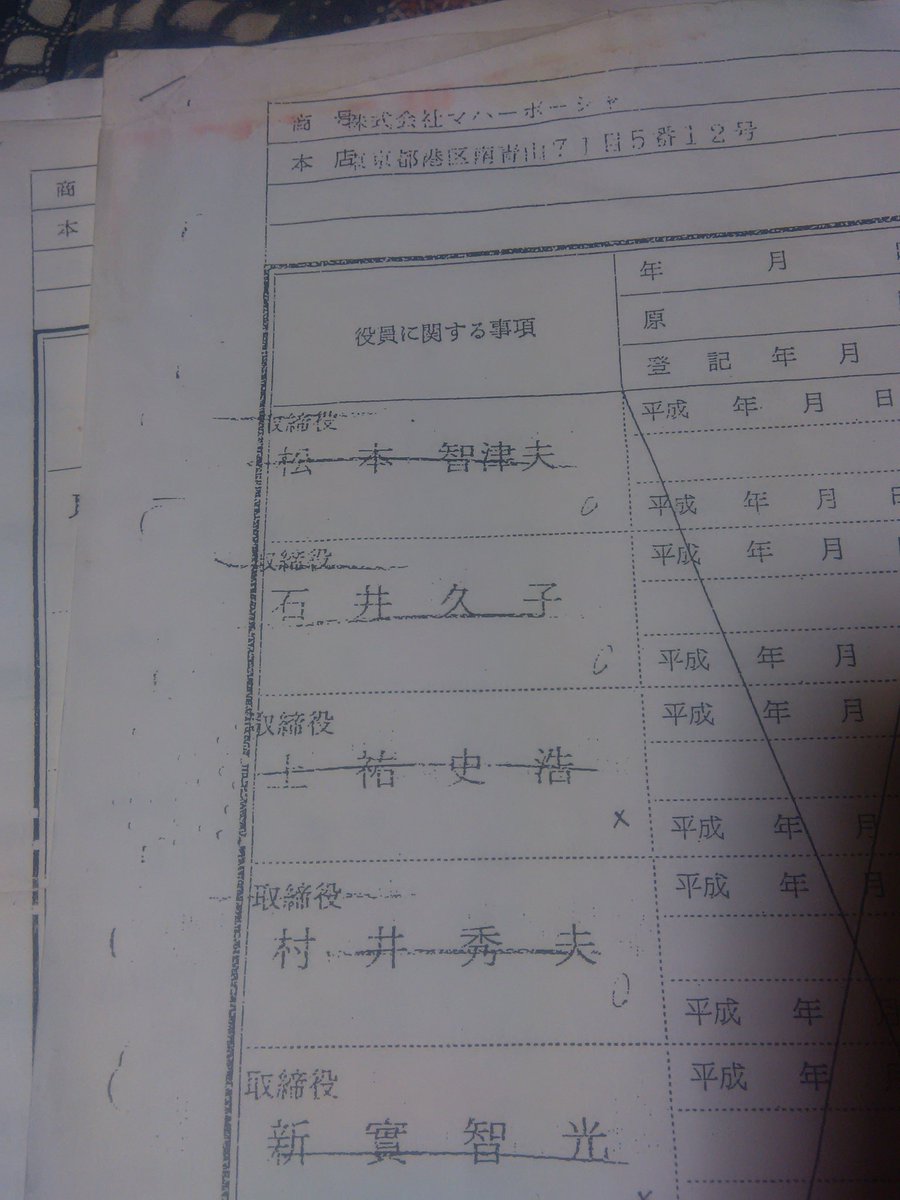 商
本
商号 株式会社マハーポーシャ
本店 東京都港区南青山7丁目5番12号
役員に関する事項
年 月
原
登記年月
取締役
松本智津夫
平成 年 月 日
平成 年 月 日
取締役
石井久子
平成 年 月
平成 年 月
取締役
上祐史浩
×
平成 年 月
平成 年 月
取締役
村井秀夫
平成 年 月
平成 年
取締役
新實智光
平成 年